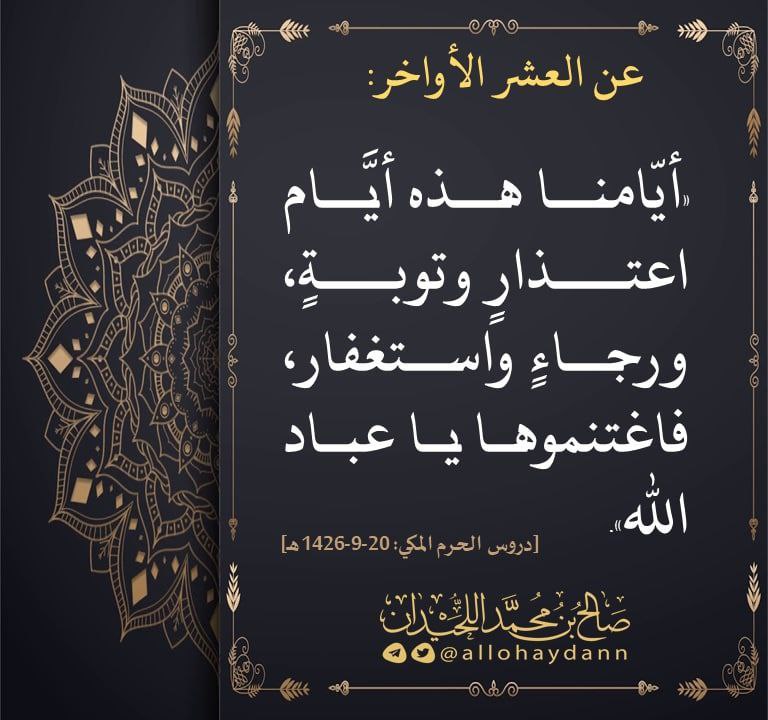 عن العشر الأواخر:
«أيّامنا هذه أيَّام
اعتذارٍ وتوبةٍ،
ورجاءٍ واستغفار،
فاغتنموها يا عباد
الله».
[دروس الحرم المكي: 20-9-1426هـ]
صالح بن محمد اللحيدان
@allohaydann